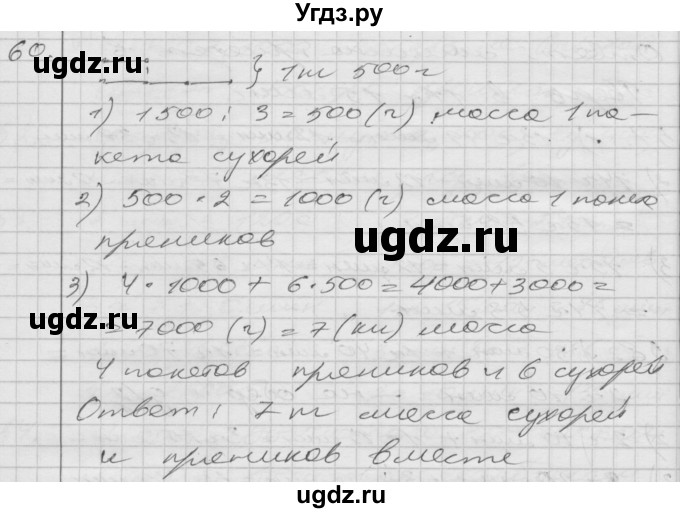 Угдз.ру
60.
ugdz.ru
} 1кг 500г
1) 1500 : 3 = 500 (г) масса 1 па-
кета сухарей
2) 500 · 2 = 1000 (г) масса 1
пряников
ugdz.ru
3) 4 · 1000 + 6 · 500 = 4000 + 3000 =
ugdz.ru
= 7000 (г) = 7 (кг) масса
4 пакетов пряников и 6 сухарей
Ответ: 7 кг масса сухарей
ugdz.ru
и пряников вместе
ugdz.ru